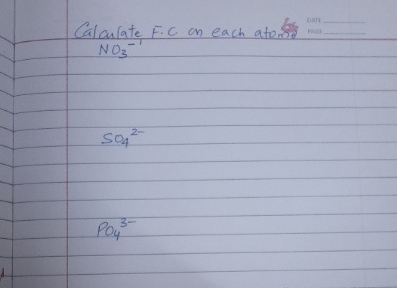 Calculate F.C on each atoms
DATE
PAGE
NO₃⁻¹
SO₄²⁻
PO₄³⁻